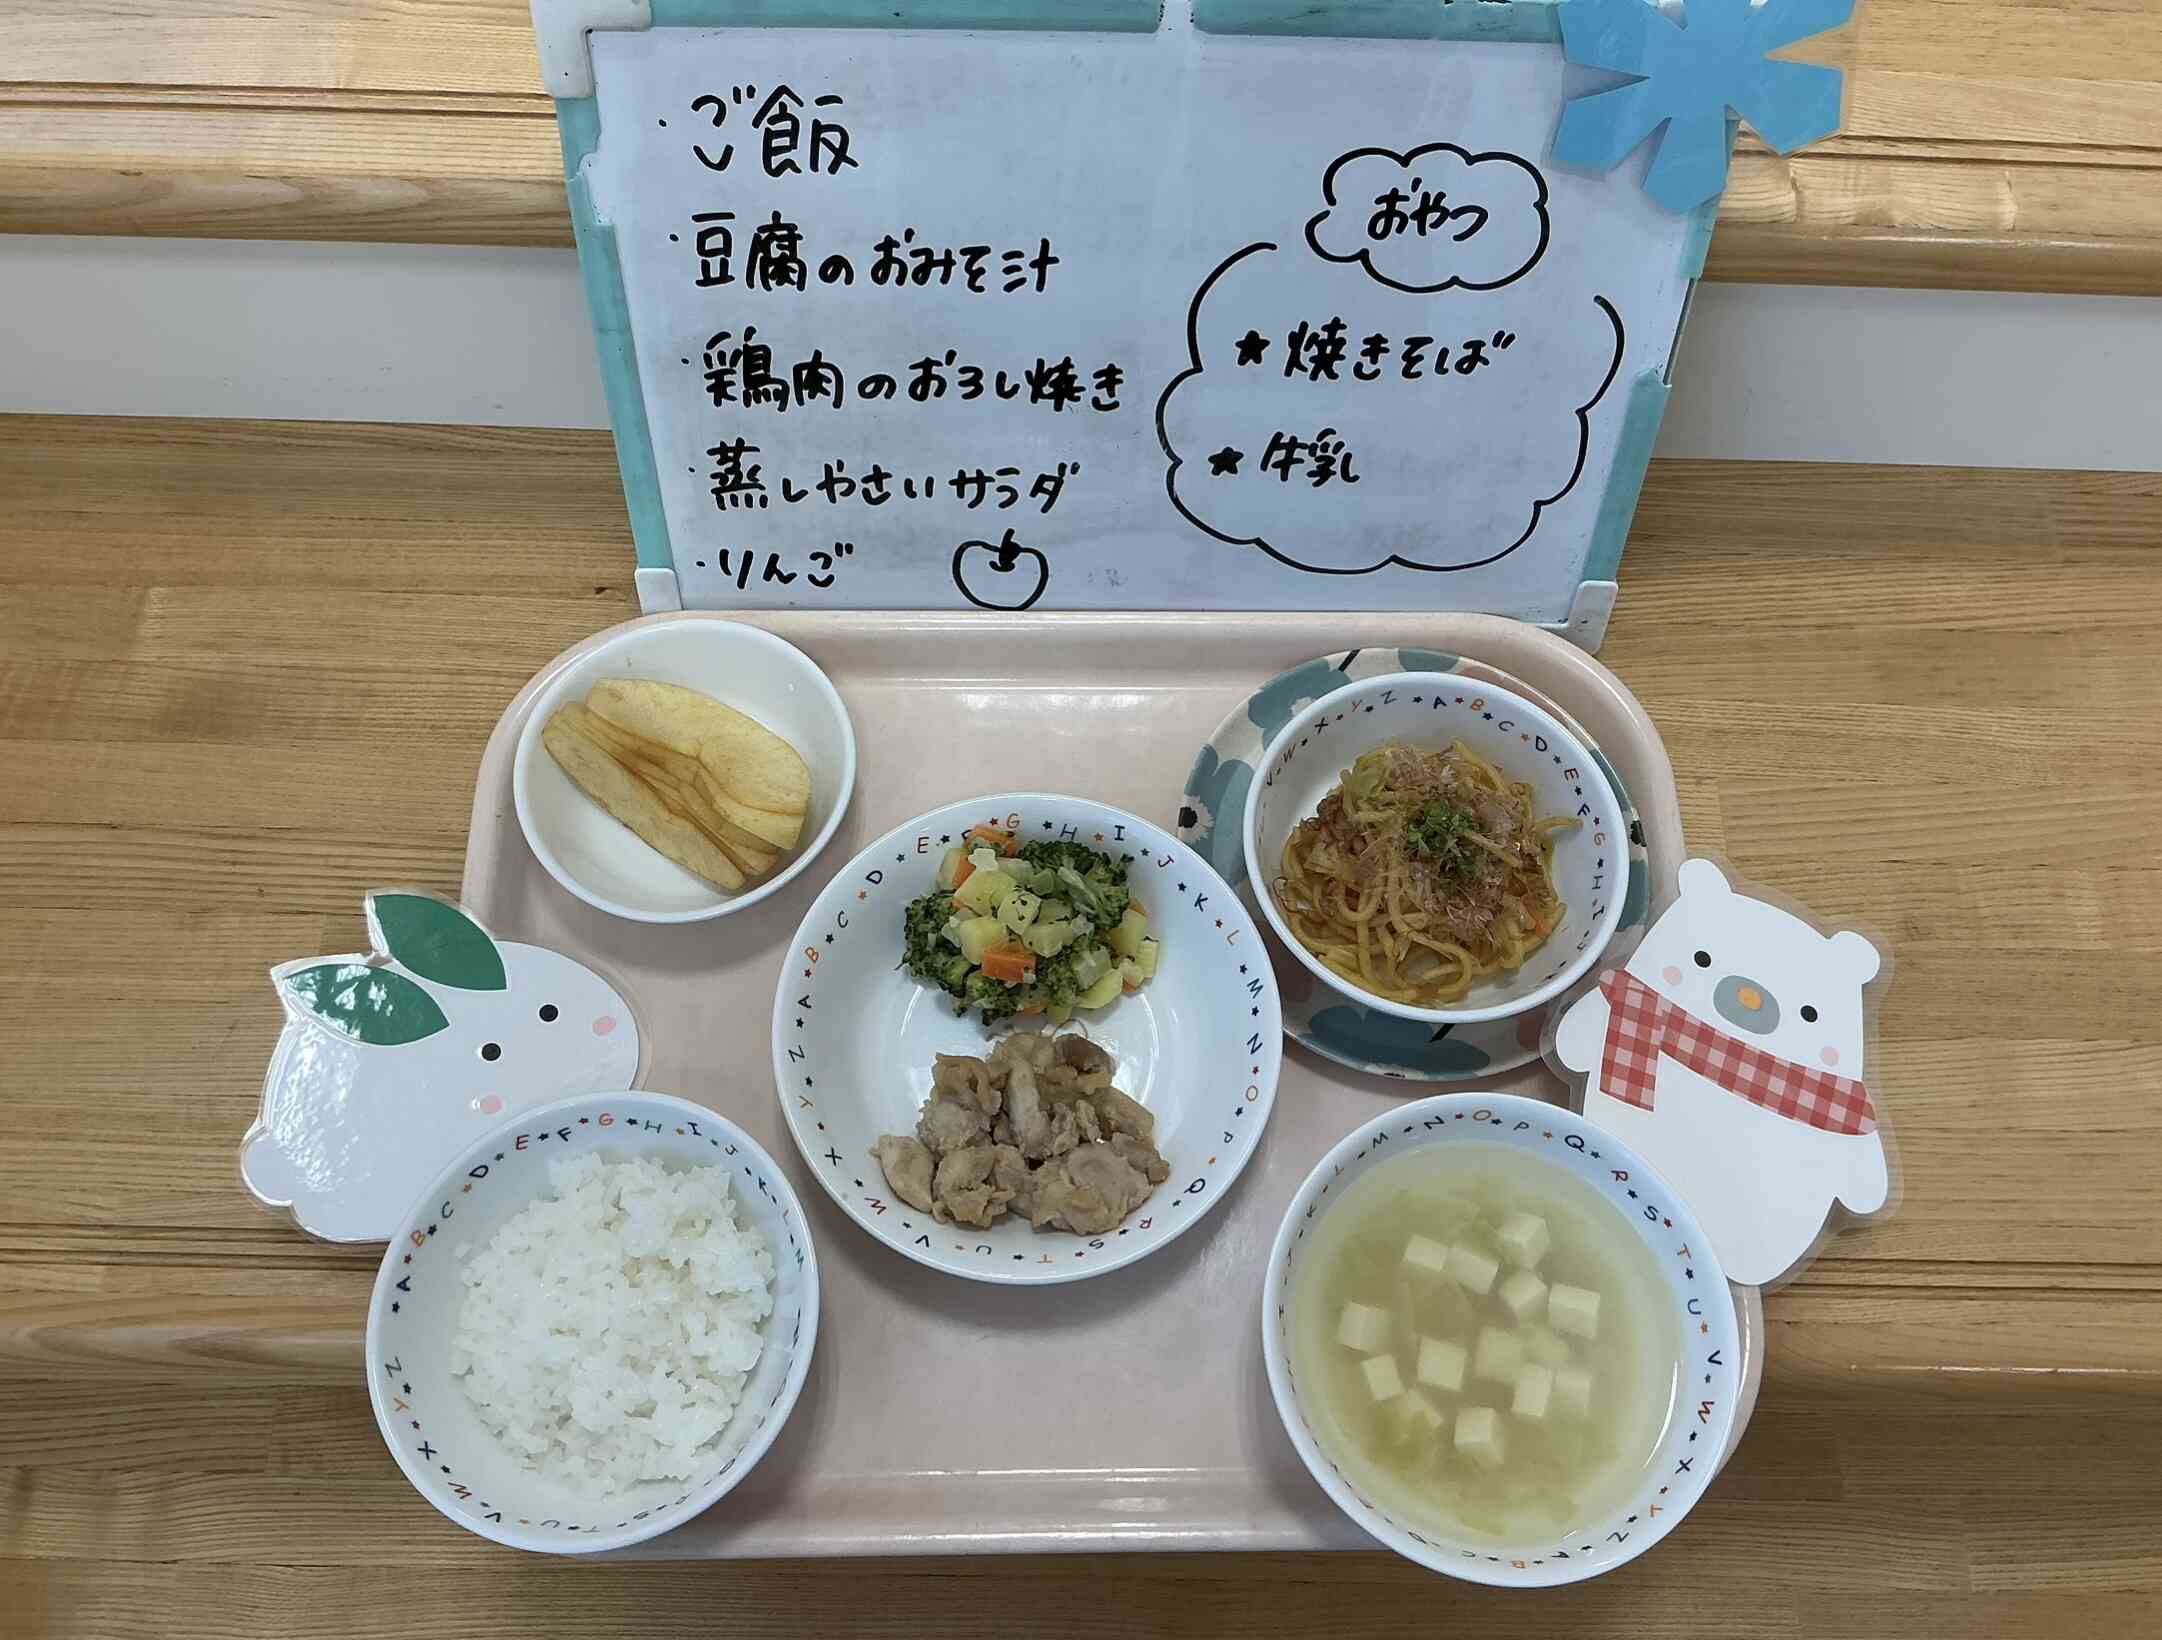 ・ご飯
・豆腐のおみそ汁
・鶏肉のおろし焼き
・蒸しやさいサラダ
・りんご
おやつ
★焼きそば
★牛乳
V★W★X★Y★Z★A★B★C★D★E★F★G★H★I★J
A★B★C★D★E★F★G★H★I★J★K★L★M★N★O★P★Q★R★S★T★U★V★W★X★Y★Z
A★B★C★D★E★F★G★H★I★J★K★L
T★U★V★W★X★Y★Z
K★L★M★N★O★P★Q★R★S★T★U★V★W★X★Y★Z★A★B★C★D